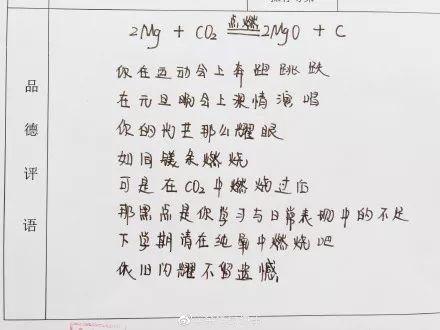 2Mg + CO₂ 点燃 2MgO + C
品德评语
你在运动会上奔跑跳跃
在元旦晚会上深情演唱
你的光芒那么耀眼
如同镁条燃烧
可是在CO₂中燃烧过后
那黑点是你学习与日常表现中的不足
下学期请在纯氧中燃烧吧
依旧闪耀不留遗憾